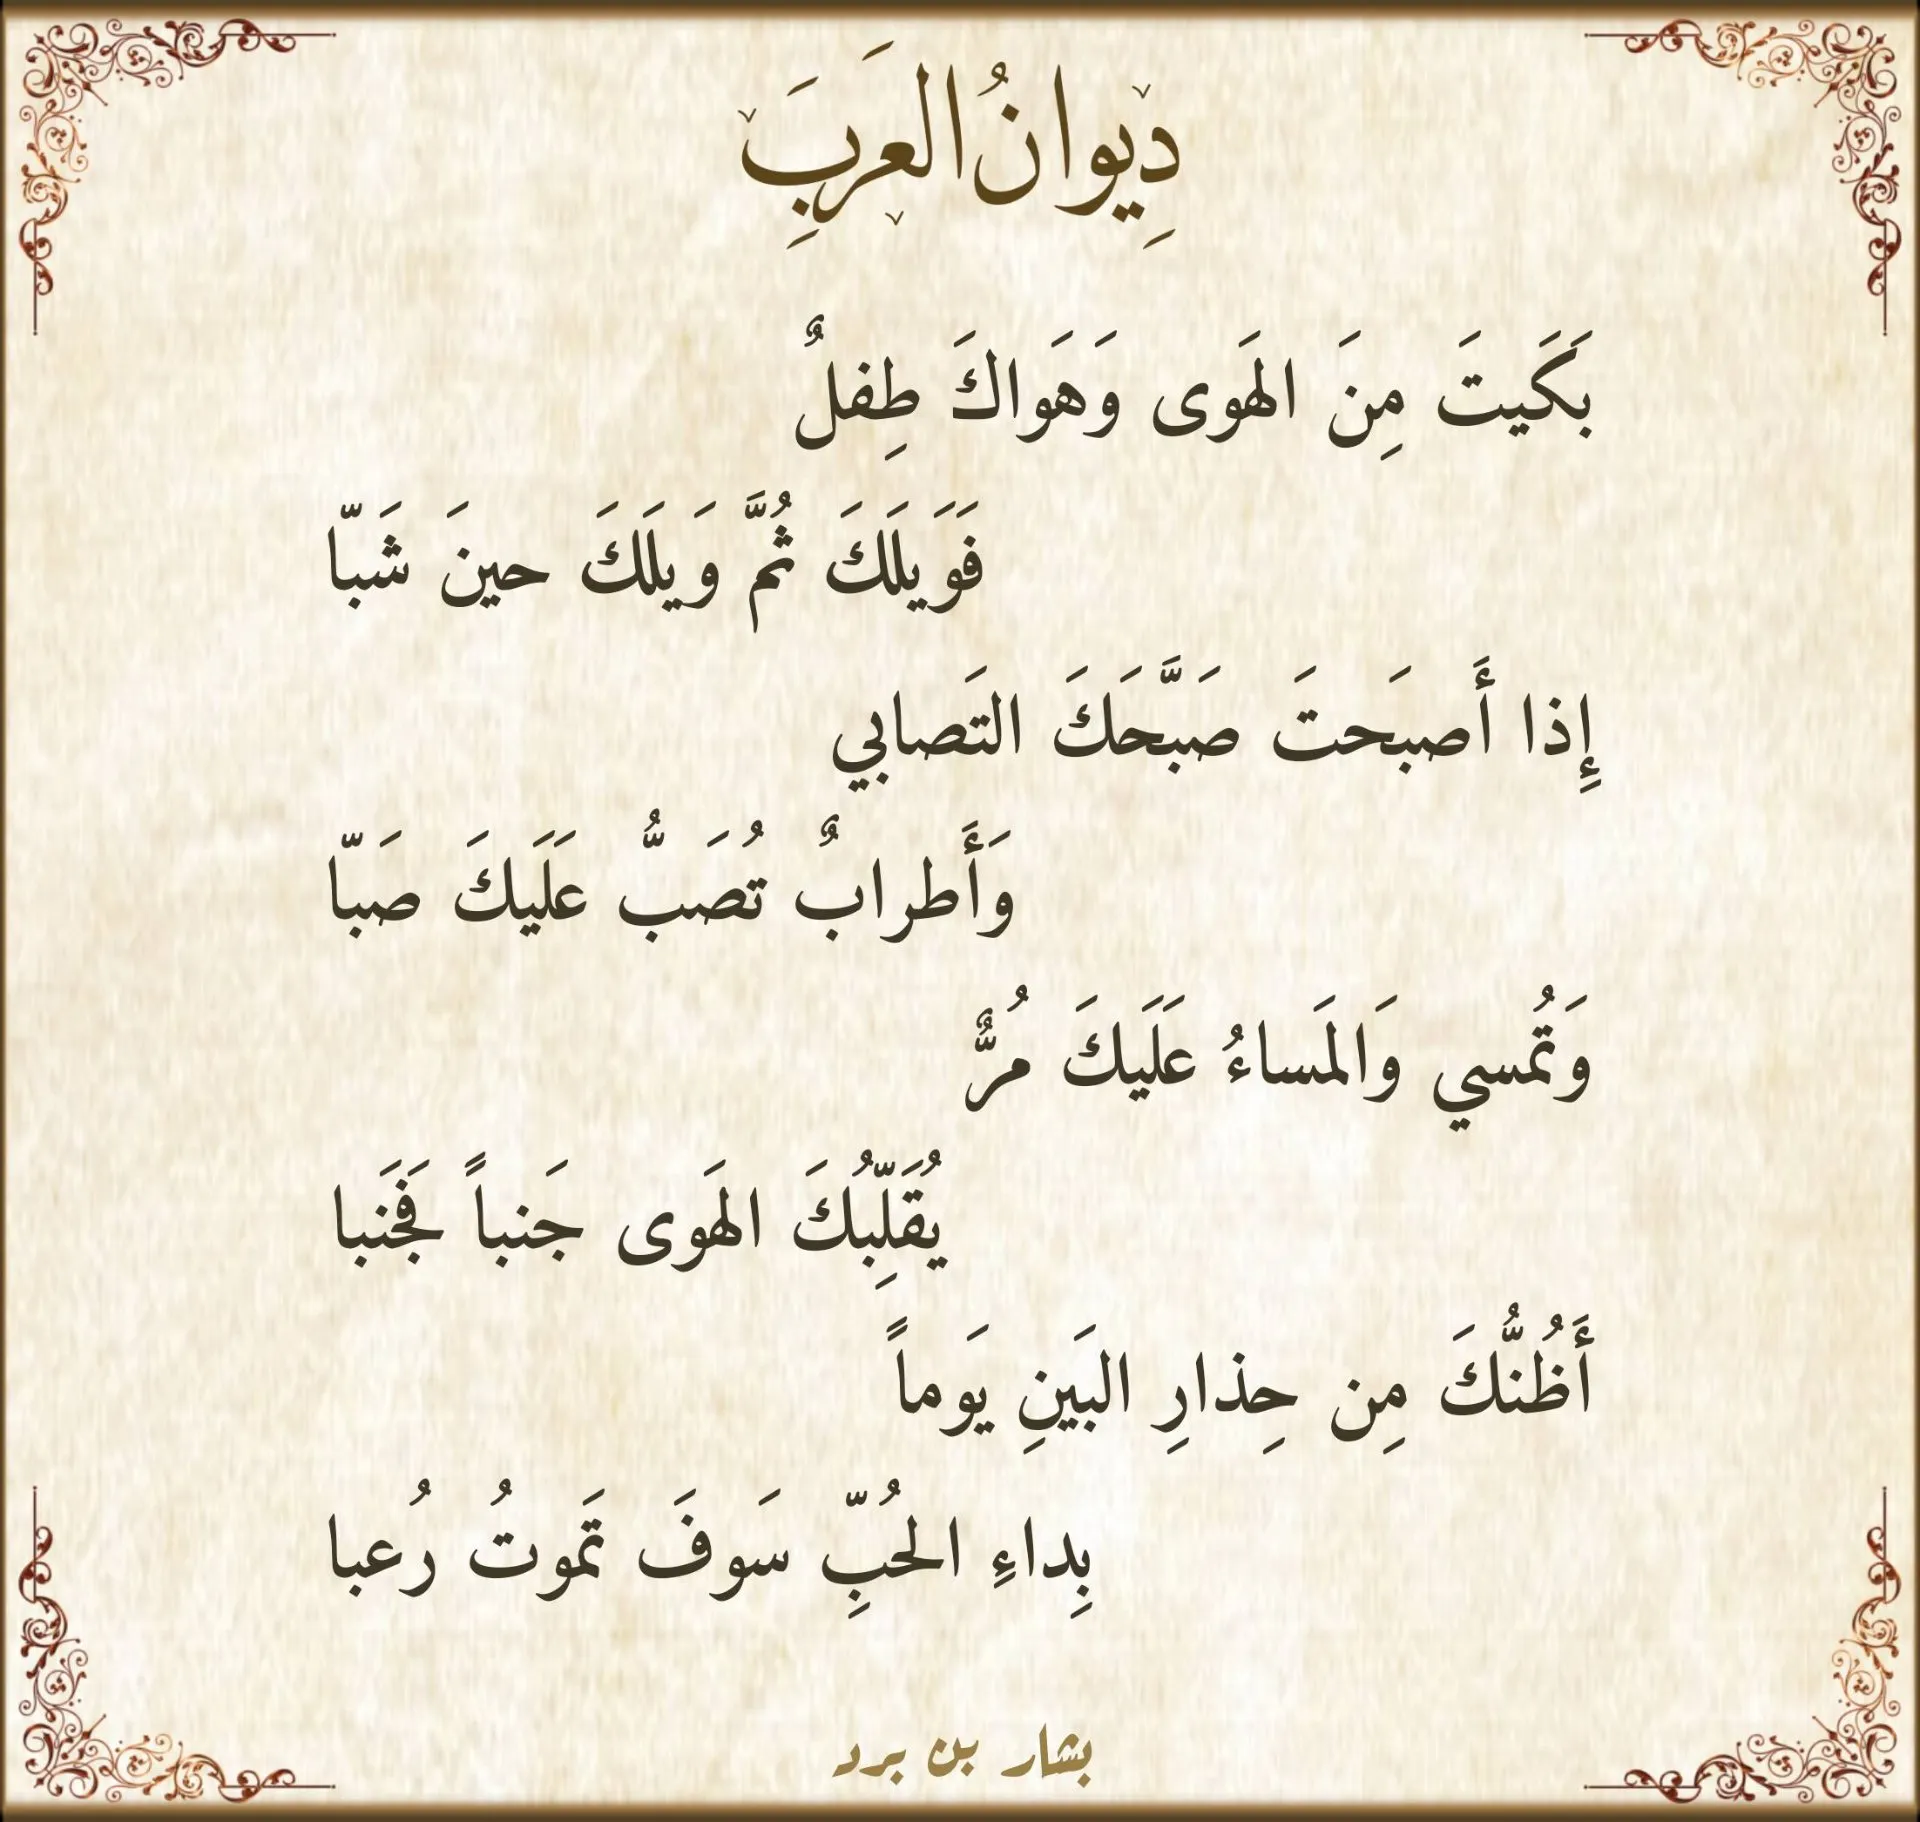 دِيوانُ العَرَبِ
بَكَيتَ مِنَ الهَوى وَهَواكَ طِفلٌ
فَوَيلَكَ ثُمَّ وَيلَكَ حينَ شَبّا
إِذا أَصبَحتَ صَبَّحَكَ التَصابي
وَأَطرابٌ تُصَبُّ عَلَيكَ صَبّا
وَتُمسي وَالمَساءُ عَلَيكَ مُرٌّ
يُقَلِّبُكَ الهَوى جَنباً فَجَنبا
أَظُنُّكَ مِن حِذارِ البَينِ يَوماً
بِداءِ الحُبِّ سَوفَ تَموتُ رُعبا
بشار بن برد